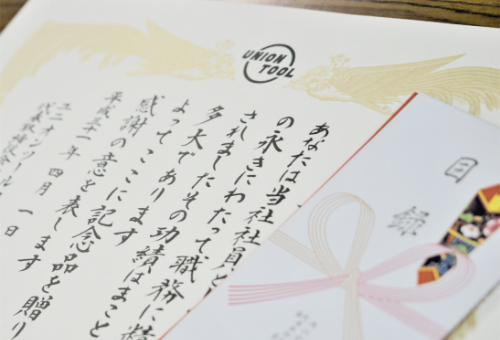 UNION
TOOL
あなたは当社社員と
の永きにわたって職務に精
されましたその功績はまこと
多大であります
よってここに記念品を贈り
感謝の意を表します
平成三十一年 四月 一日
ユニオンツール
代表取締役会
目録